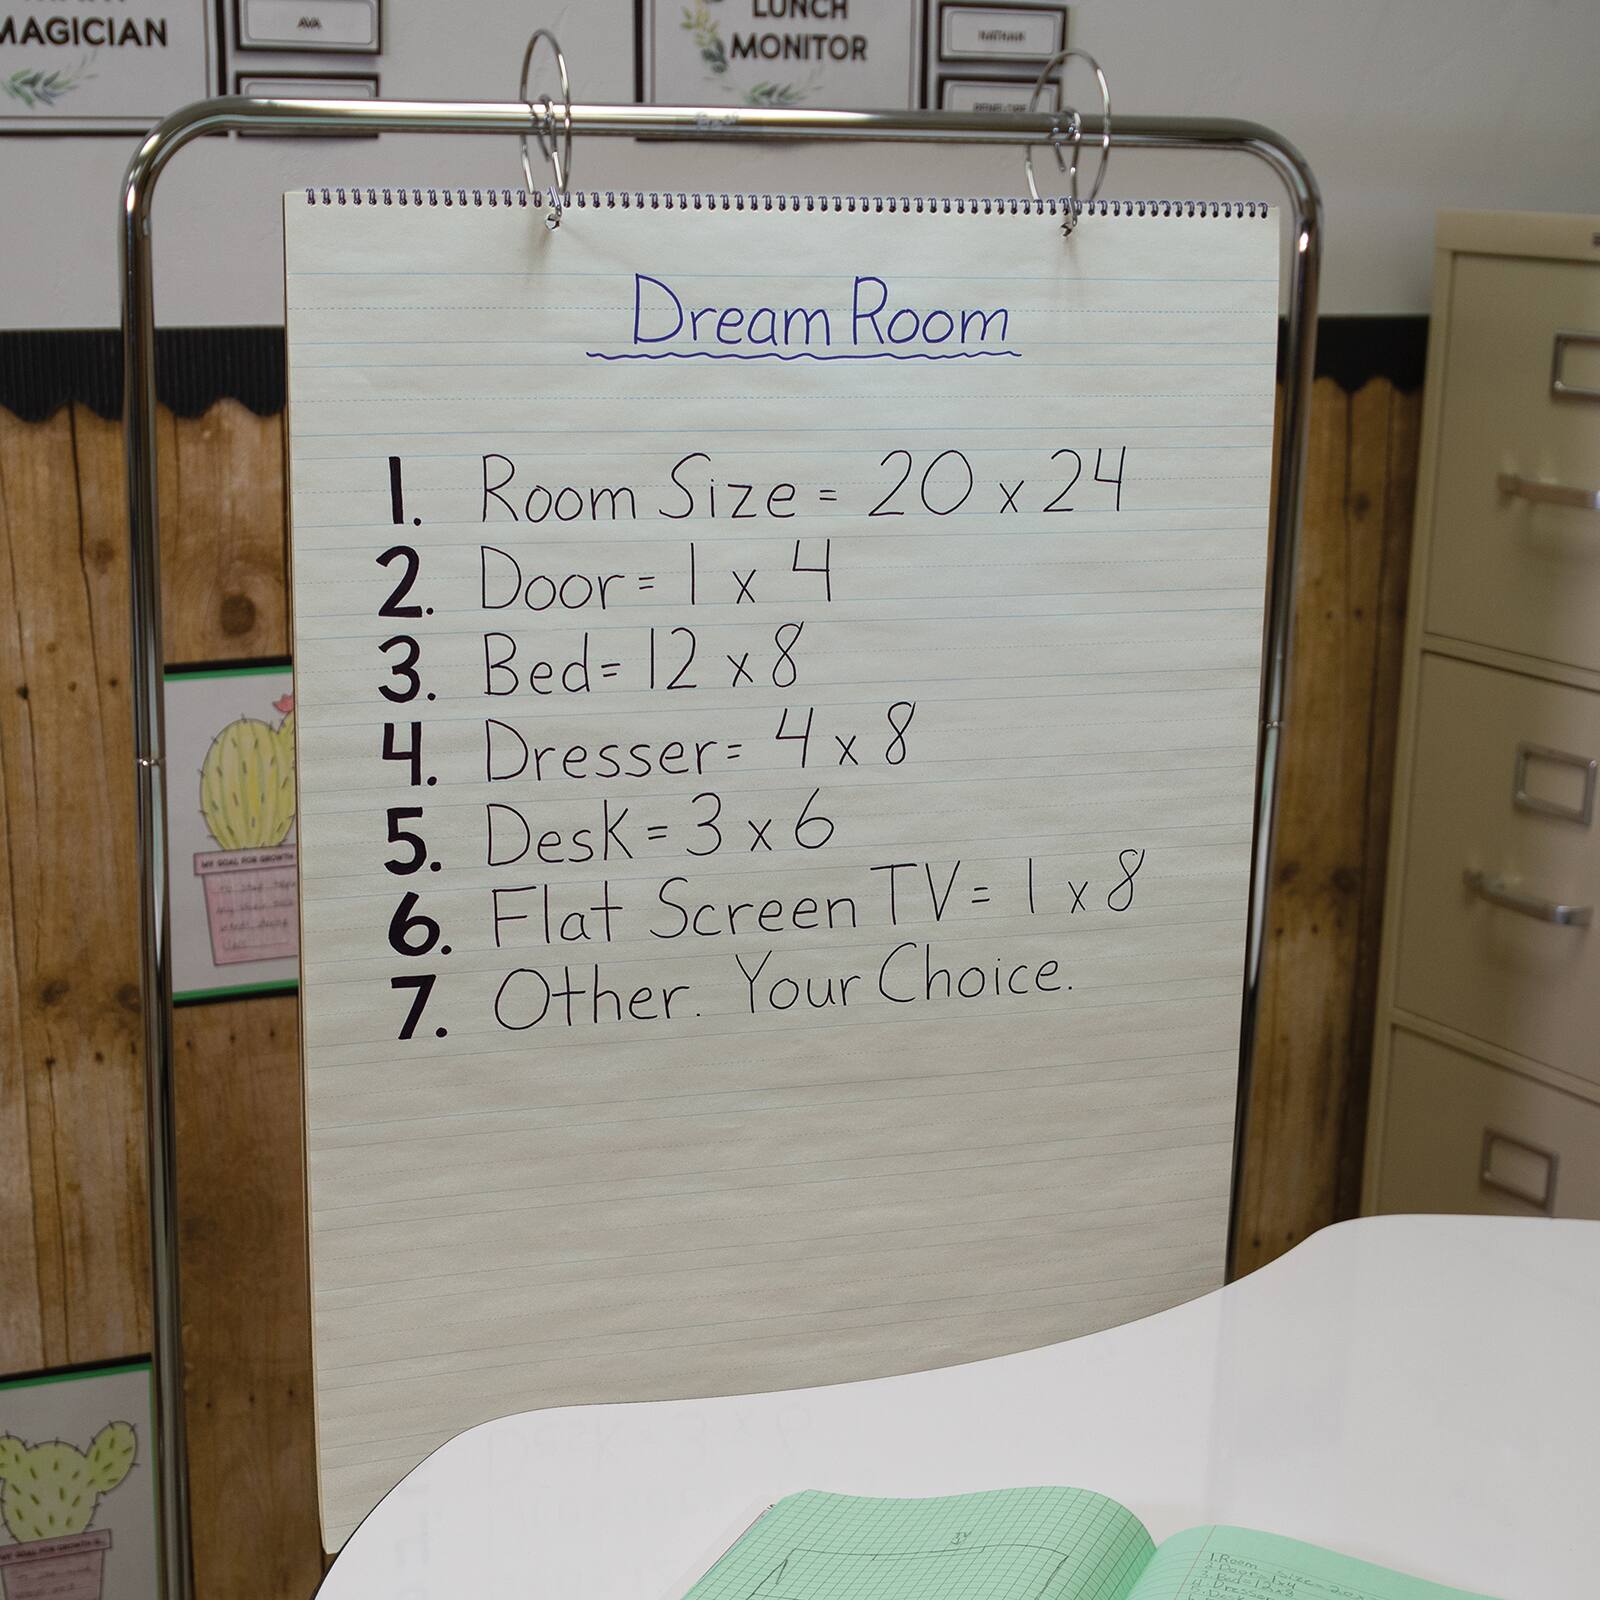 MAGICIAN
AVA
LUNCH
MONITOR
NATHAN
Dream Room
1. Room Size = 20 x 24
2. Door = 1 x 4
3. Bed = 12 x 8
4. Dresser = 4 x 8
5. Desk = 3 x 6
6. Flat Screen TV = 1 x 8
7. Other. Your Choice.
MY GOAL FOR GROWTH
MY GOAL FOR GROWTH
1. Room Size = 20
2. Door = 1x4
3. Bed = 12x8
4. Dresser
5. Desk